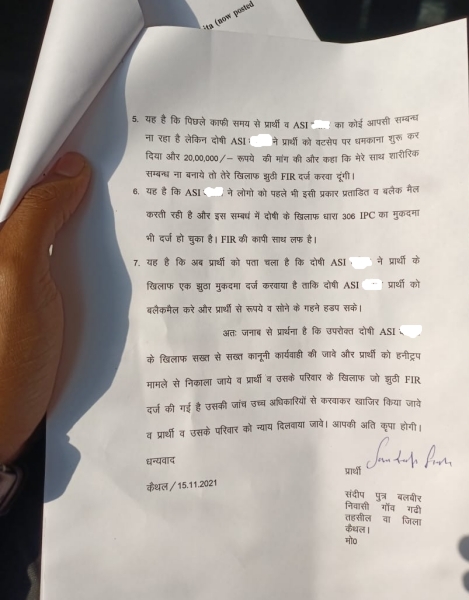 ita (now posted
5. यह है कि पिछले काफी समय से प्रार्थी व ASI का कोई आपसी सम्बन्ध
ना रहा है लेकिन दोषी ASI ने प्रार्थी को वटसेप पर धमकाना शुरू कर
दिया और 20,00,000/– रूपये की मांग की और कहा कि मेरे साथ शारीरिक
सम्बन्ध ना बनाये तो तेरे खिलाफ झुठी FIR दर्ज करवा दूंगी।
6. यह है कि ASI ने लोगो को पहले भी इसी प्रकार प्रताडित व बलैक मैल
करती रही है और इस सम्बधं में दोषी के खिलाफ धारा 306 IPC का मुकदमा
भी दर्ज हो चुका है। FIR की कापी साथ लफ है।
7. यह है कि अब प्रार्थी को पता चला है कि दोषी ASI ने प्रार्थी के
खिलाफ एक झुठा मुकदमा दर्ज करवाया है ताकि दोषी ASI प्रार्थी को
बलैकमैल करे और प्रार्थी से रूपये व सोने के गहने हडप सके।
अतः जनाब से प्रार्थना है कि उपरोक्त दोषी ASI
के खिलाफ सख्त से सख्त कानूनी कार्यवाही की जावे और प्रार्थी को हनीट्रप
मामले से निकाला जाये व प्रार्थी व उसके परिवार के खिलाफ जो झुठी FIR
दर्ज की गई है उसकी जांच उच्च अधिकारियों से करवाकर खाजिर किया जावे
व प्रार्थी व उसके परिवार को न्याय दिलवाया जावे। आपकी अति कृपा होगी।
धन्यवाद
प्रार्थी
कैथल/15.11.2021
संदीप पुत्र बलबीर
निवासी गॉव गढी
तहसील वा जिला
कैथल।
मो0